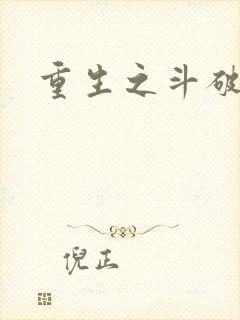 重生之斗破
倪正